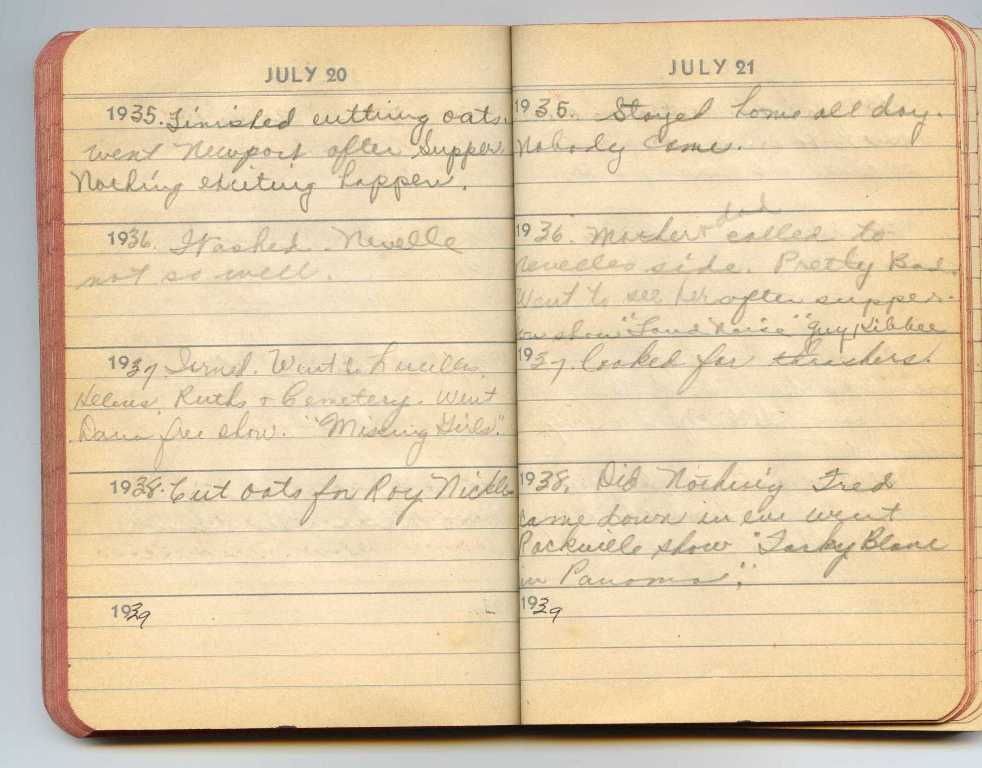 JULY 20
1935. Finished cutting oats.
went Newport after Supper
Nothing exciting happen.
1936. Washed. Nevelle
not so well.
1937. Ironed. Went to Lucilles,
Helens, Ruths & Cemetery. Went
Dana free show. "Missing Girls."
1938. Cut oats for Roy Nickle
1939
JULY 21
1935. Stayed home all day.
Nobody Came.
dad
1936. Mother & called to
Nevelles side. Pretty Bad.
Went to see her after supper.
show "Loud Noise" Guy Kibbee
1937. looked for thrashers.
1938. Did Nothing Fred
came down in eve went
Rockville show "Torchy Blane
in Panama".
1939